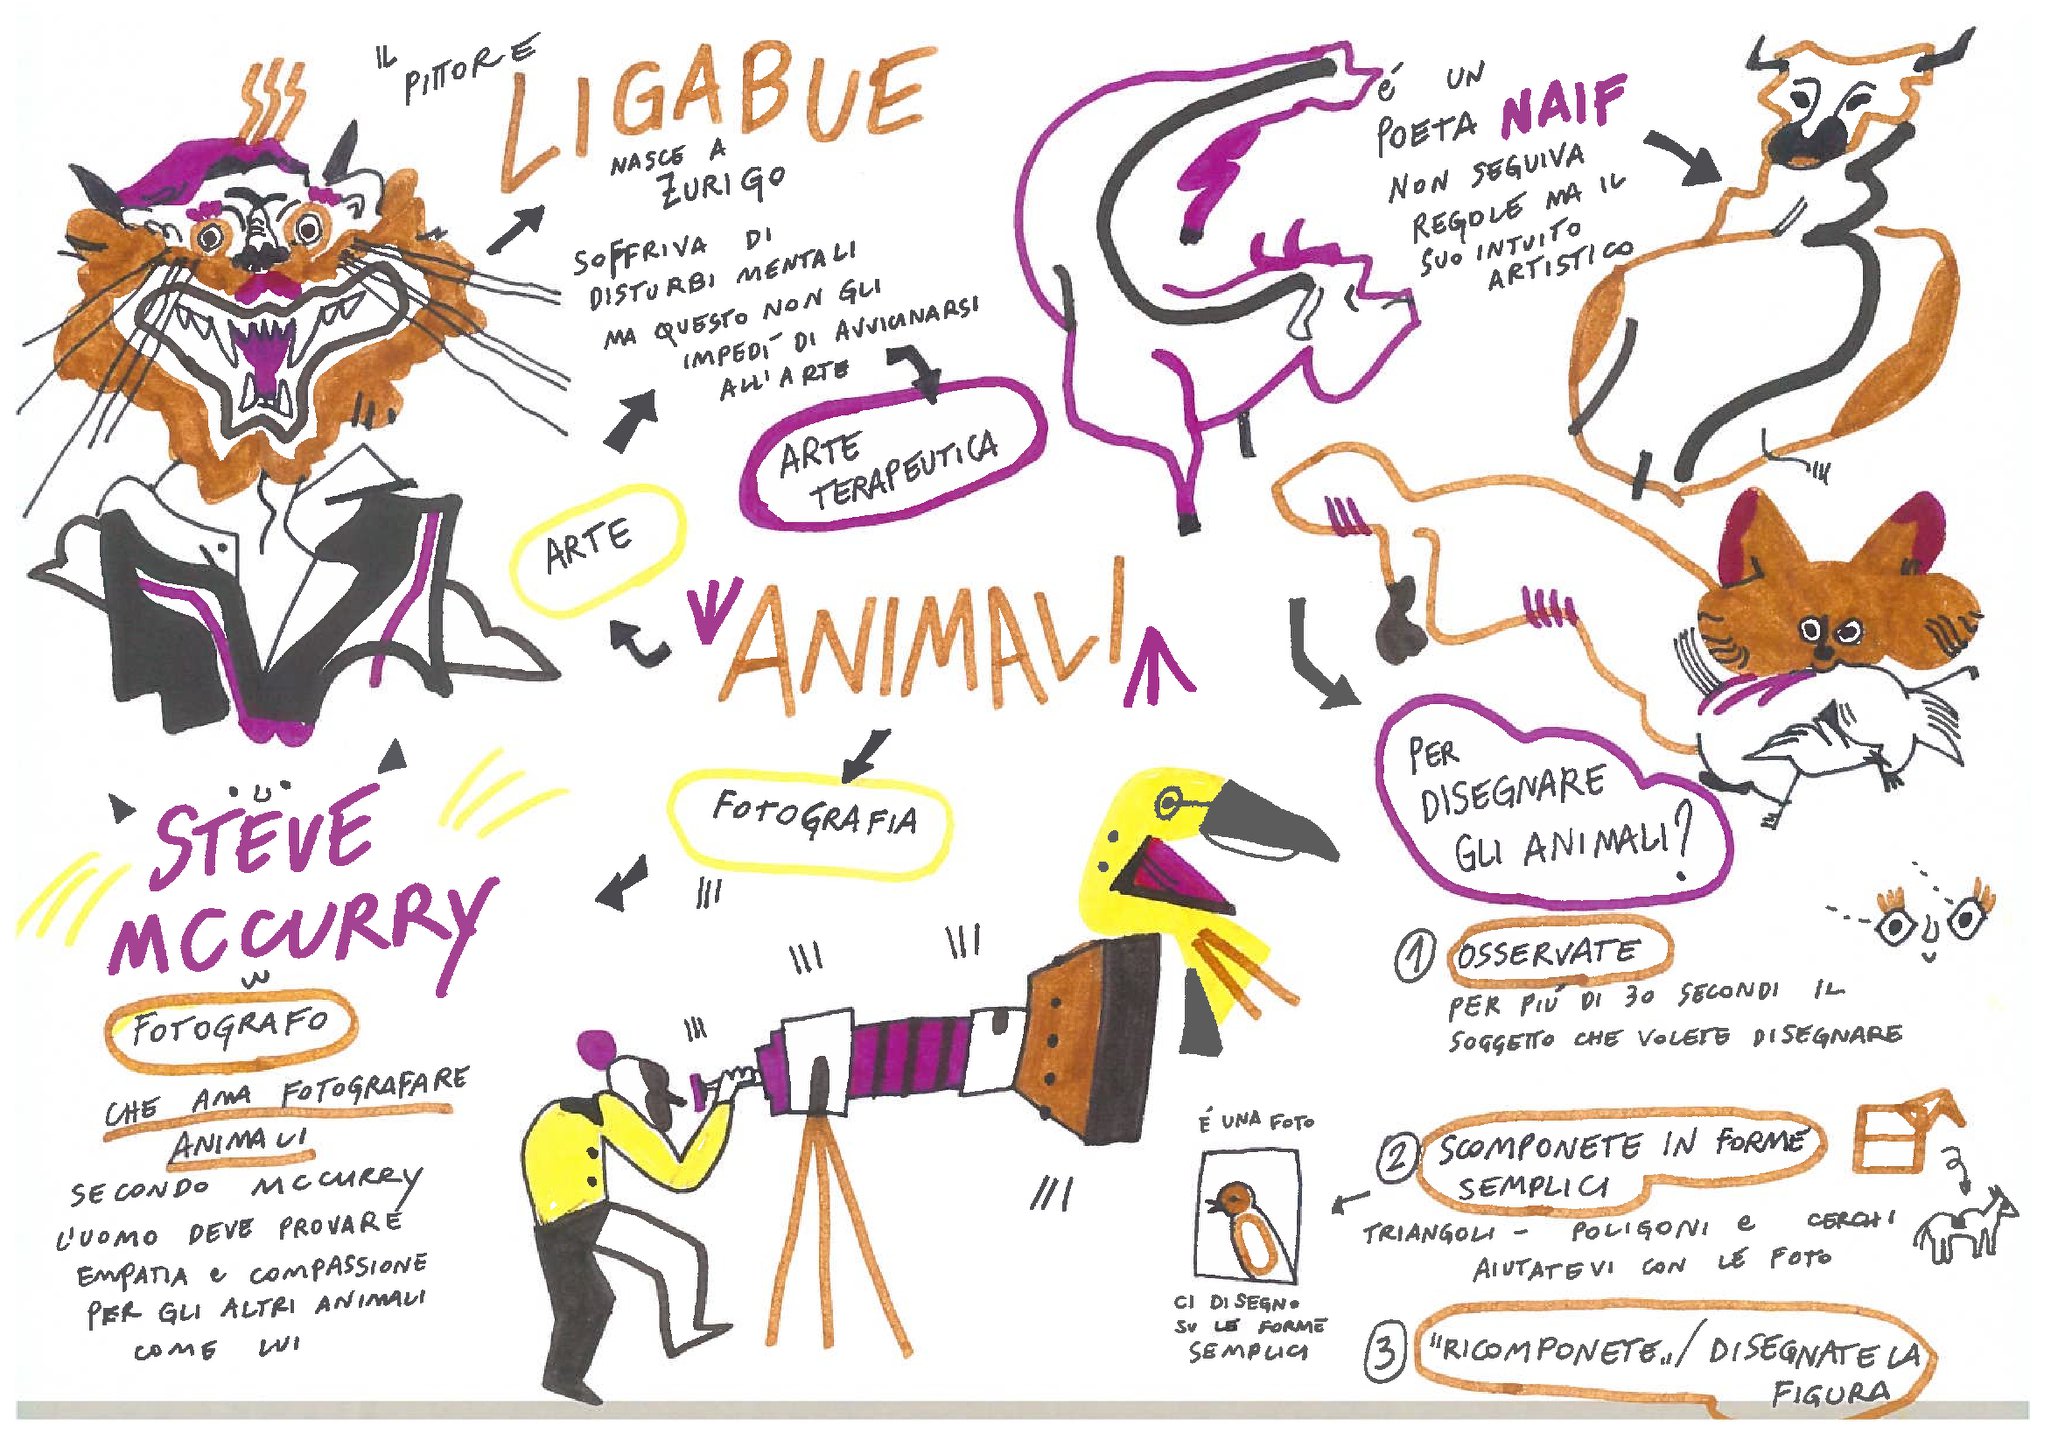 IL
PITTORE
LIGABUE
NASCE A
ZURIGO
SOFFRIVA DI
DISTURBI MENTALI
MA QUESTO NON GLI
IMPEDÌ DI AVVICINARSI
ALL'ARTE
ARTE
TERAPEUTICA
É UN
POETA NAIF
NON SEGUIVA
REGOLE MA IL
SUO INTUITO
ARTISTICO
ARTE
ANIMALI
FOTOGRAFIA
STEVE
MCCURRY
FOTOGRAFO
CHE AMA FOTOGRAFARE
ANIMALI
SECONDO MCCURRY
L'UOMO DEVE PROVARE
EMPATIA e COMPASSIONE
PER GLI ALTRI ANIMALI
COME LUI
PER
DISEGNARE
GLI ANIMALI?
1 OSSERVATE
PER PIÚ DI 30 SECONDI IL
SOGGETTO CHE VOLETE DISEGNARE
2 SCOMPONETE IN FORME
SEMPLICI
TRIANGOLI - POLIGONI e CERCHI
AIUTATEVI CON LE FOTO
É UNA FOTO
CI DISEGNO
SU LE FORME
SEMPLICI
3 "RICOMPONETE„/ DISEGNATE LA
FIGURA